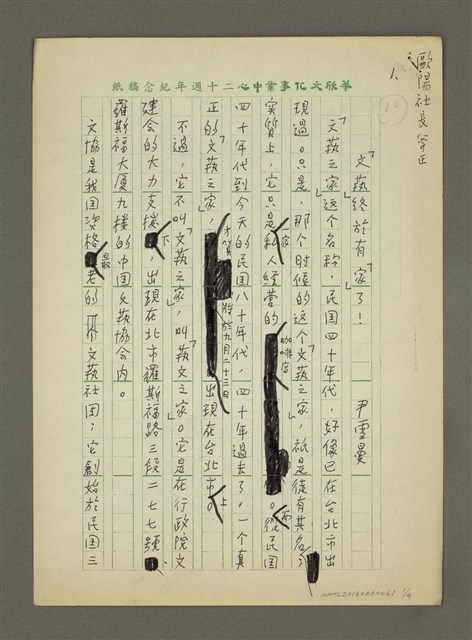 歐陽社長斧正
1.
華脉文化事業中心二十週年紀念稿紙
10
「文藝」終於有「家」了！
尹雪曼
「文藝之家」这个名称，民国四十年代，好像已在台北市出
現過。只是，那个时候的这个「文藝之家」，祇是徒有其名；
实質上，它只是一家私人経营的咖啡店。從民国
四十年代到今天的民国八十年代，四十年過去了，一个真
正的「文藝之家」，才算於九月二十三日出現在台北市上。
不過，它不叫「文藝之家」，叫「藝文之家」。它是在行政院文
建会的大力支援下，出現在北市羅斯福路三段二七七號
羅斯福大廈九樓的中国文藝協会内。
文協是我国資格最老的文藝社团；它創始於民国三
NMTL20160260061 1/4